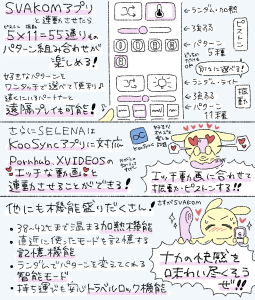 SVAKOMアプリ
と連動させたら
ピストン 振動
5×11=55通りもの
パターン組み合わせが
楽しめる!
好きなパターンを
ワンタッチで選べて便利♪
遠くにいるパートナーと
遠隔プレイも可能!
ランダム・加熱
強さ
パターン
5種
ピストン
別々に選べる!
ランダム・ライト
強さ
パターン
11種
振動
さらにSELENAは
KooSyncアプリに対応
Pornhub、XVIDEOSの
エッチな動画と
連動させることができる!
エッチ動画に合わせて
振動・ピストンする!!
他にも機能盛りだくさん!
さすがSVAKOM
・38~42℃まで温まる加熱機能
・直近に使ったモードを記憶する
記憶機能
・ランダムでパターンを変えてくれる
智能モード
・持ち運びも安心トラベルロック機能
ナカの快感を
味わい尽くそう
ぜ!!